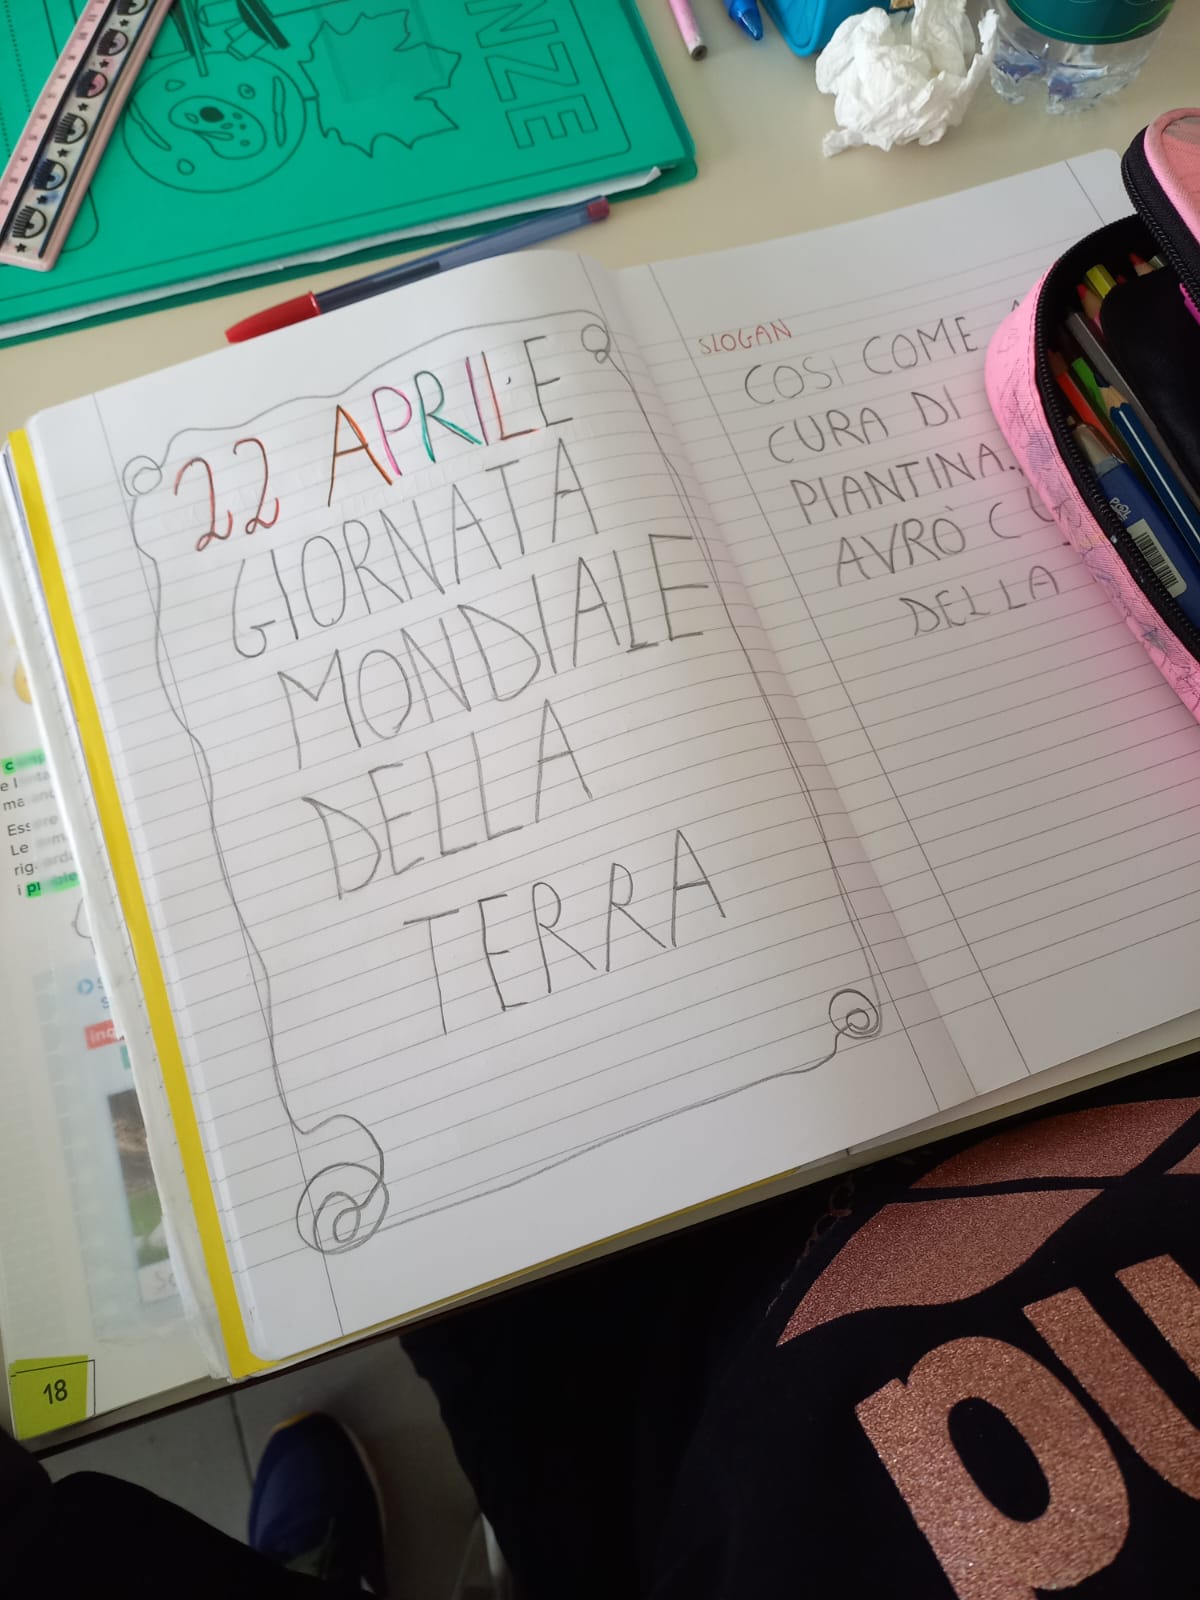 NZE
22 APRILE
GIORNATA
MONDIALE
DELLA
TERRA
SLOGAN
COSÌ COME
CURA DI
PIANTINA.
AVRÒ CU
DELLA
18
PU